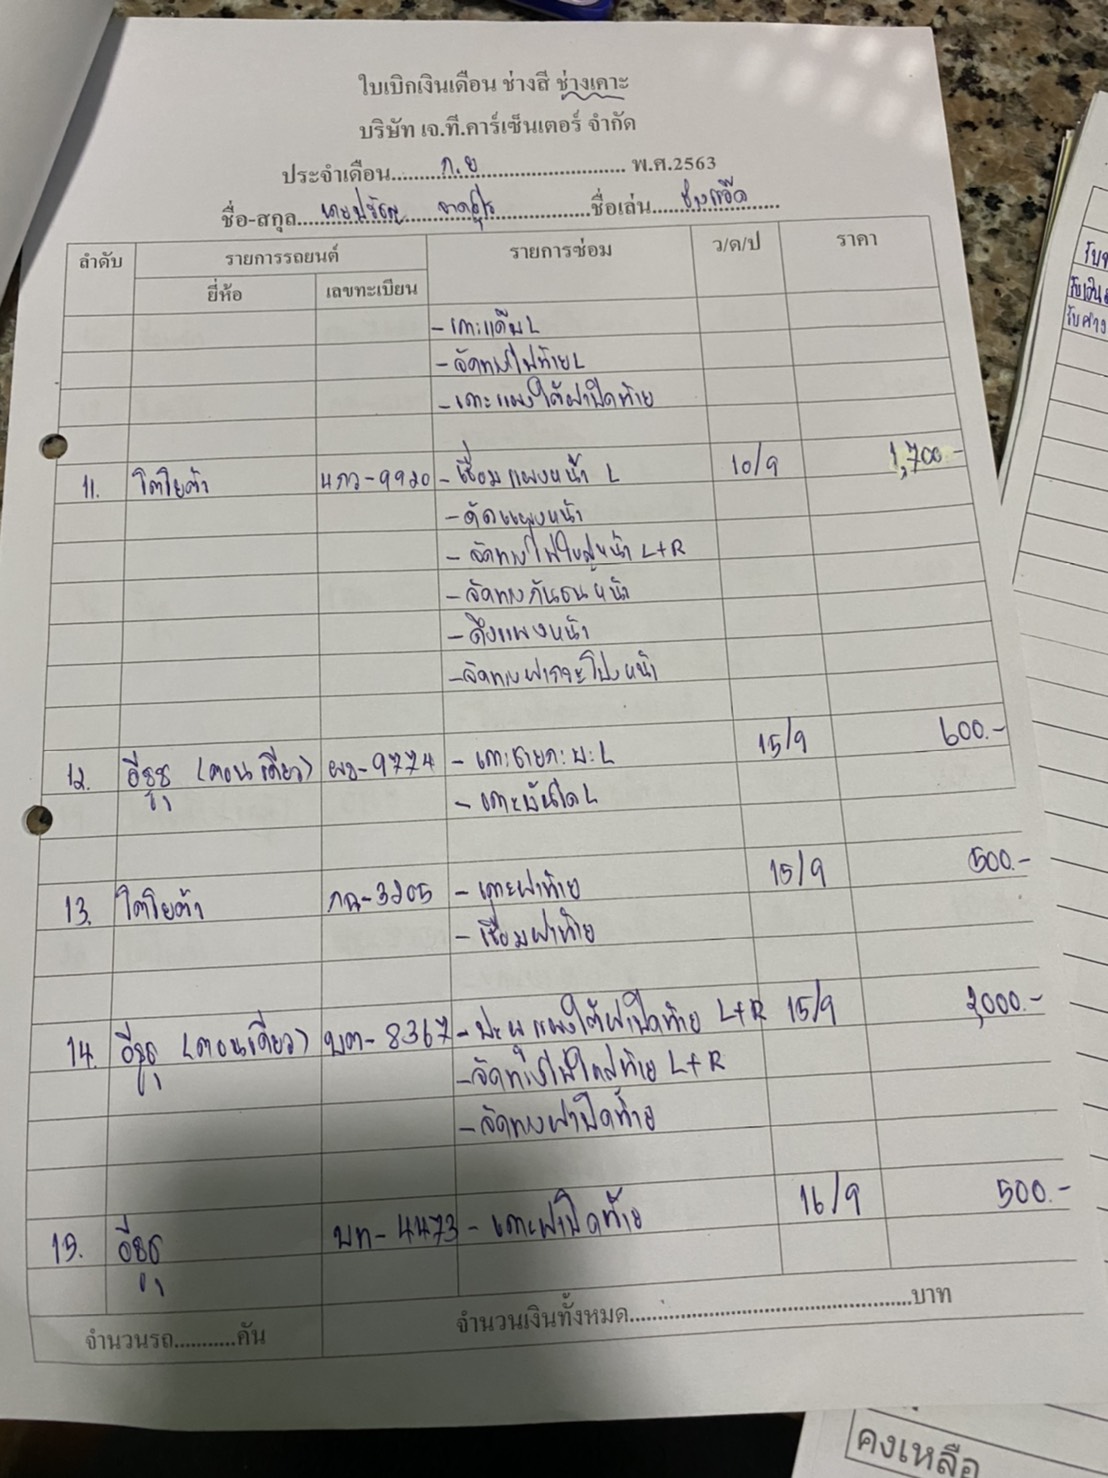 ใบเบิกเงินเดือน ช่างสี ช่างเคาะ
บริษัท เจ.ที.คาร์เซ็นเตอร์ จำกัด
ประจำเดือน.....ก.ย..... พ.ศ.2563
ชื่อ-สกุล..........ชื่อเล่น.....
ลำดับ รายการรถยนต์ รายการซ่อม ว/ด/ป ราคา
ยี่ห้อ เลขทะเบียน
- เคาะแค๊ม L
- จัดทรงไฟท้าย L
- เคาะแผงใต้ฝาปิดท้าย
11. โตโยต้า - เชื่อมแผงหน้า L 10/9 1,700.-
- ดัดแผงหน้า
- จัดทรงไฟใหญ่หน้า L+R
- จัดทรงกันชนหน้า
- ดึงแผงหน้า
- จัดทรงฝากระโปงหน้า
12. อีซูซุ (ตอนเดียว) ผข-9774 - เคาะชายกะบะ L 15/9 600.-
- เคาะบันได L
13. โตโยต้า กฉ-3205 - เคาะฝาท้าย 15/9 500.-
- เชื่อมฝาท้าย
14. อีซูซุ (ตอนเดียว) บต-8367 - ปะผุแผงใต้ฝาปิดท้าย L+R 15/9 2,000.-
- จัดทรงไฟใหญ่ท้าย L+R
- จัดทรงฝาปิดท้าย
15. อีซูซุ บท-4473 - เคาะฝาปิดท้าย 16/9 500.-
จำนวนรถ...........คัน จำนวนเงินทั้งหมด..........บาท
คงเหลือ